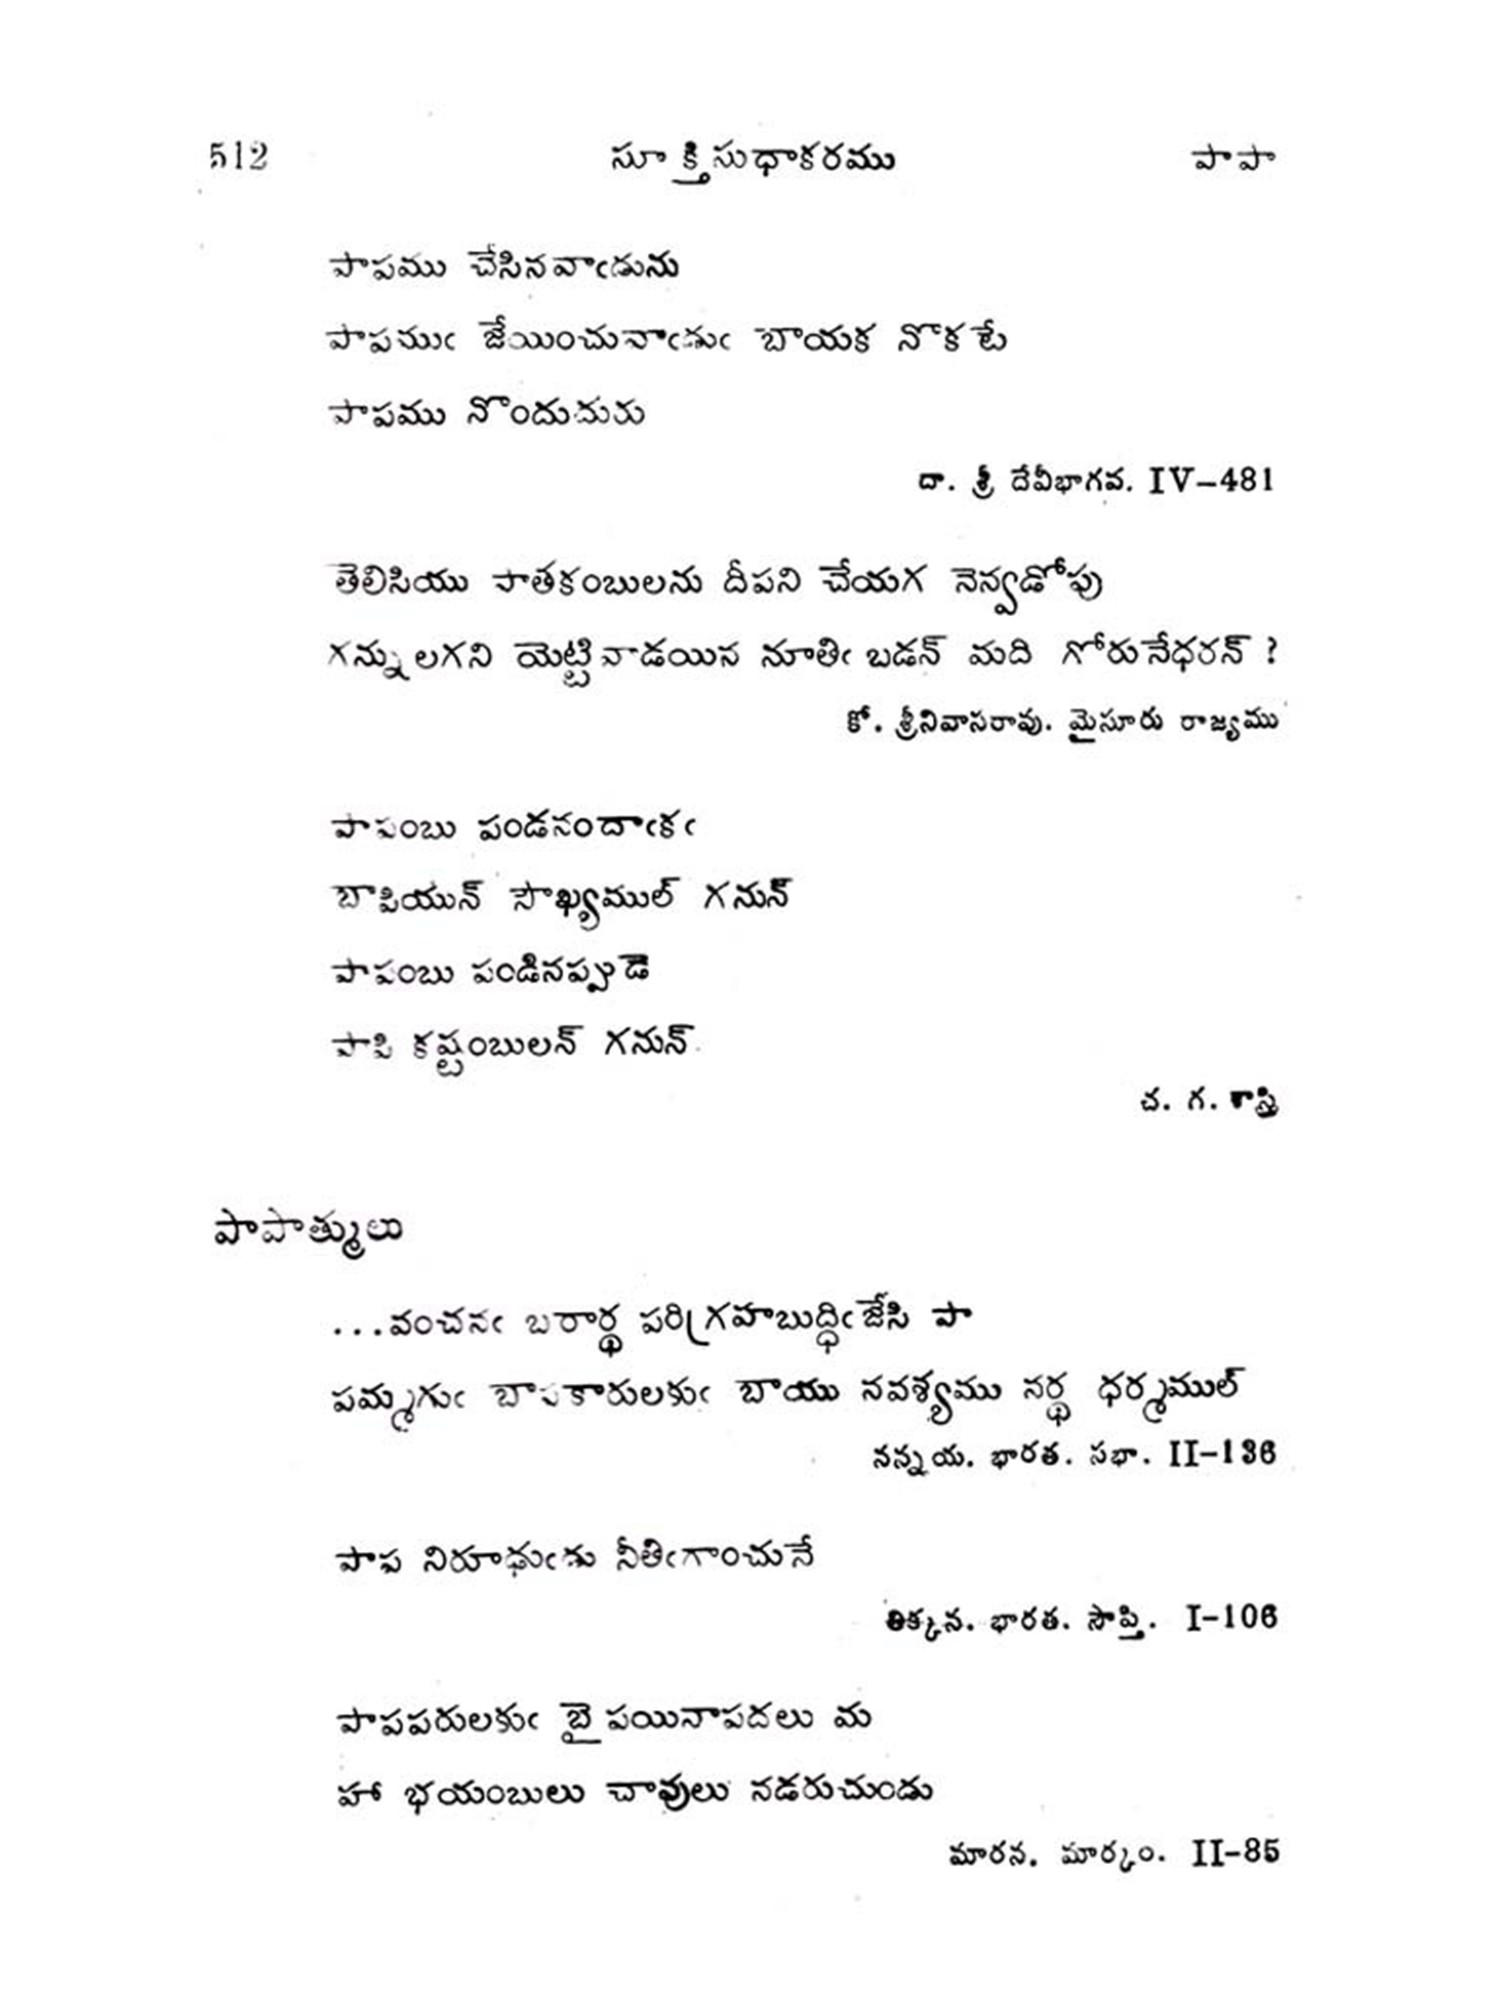 512 సూక్తిసుధాకరము పాపా
పాపము చేసినవాఁడును
పాపముఁ జేయించువాఁడుఁ బాయక నొకటే
పాపము నొందుదురు
దా. శ్రీ దేవీభాగవ. IV–481
తెలిసియు పాతకంబులను దీపని చేయగ నెన్వడోపు
గన్నులగని యెట్టివాడయిన నూతిఁ బడన్ మది గోరునేధరన్ ?
కో. శ్రీనివాసరావు. మైసూరు రాజ్యము
పాపంబు పండనందాఁకఁ
బాపియున్ సౌఖ్యముల్ గనున్
పాపంబు పండినప్పుడె
పాపి కష్టంబులన్ గనున్.
చ. గ. శాస్త్రి
పాపాత్ములు
...వంచనఁ బరార్థ పరిగ్రహబుద్ధిఁజేసి పా
పమ్మగుఁ బాపకారులకుఁ బాయు నవశ్యము నర్థ ధర్మముల్
నన్నయ. భారత. సభా. II–136
పాప నిరూఢుఁడు నీతిఁగాంచునే
తిక్కన. భారత. సౌప్తి. I–106
పాపపరులకుఁ బై పయినాపదలు మ
హా భయంబులు చావులు నడరుచుండు
మారన. మార్కం. II–85